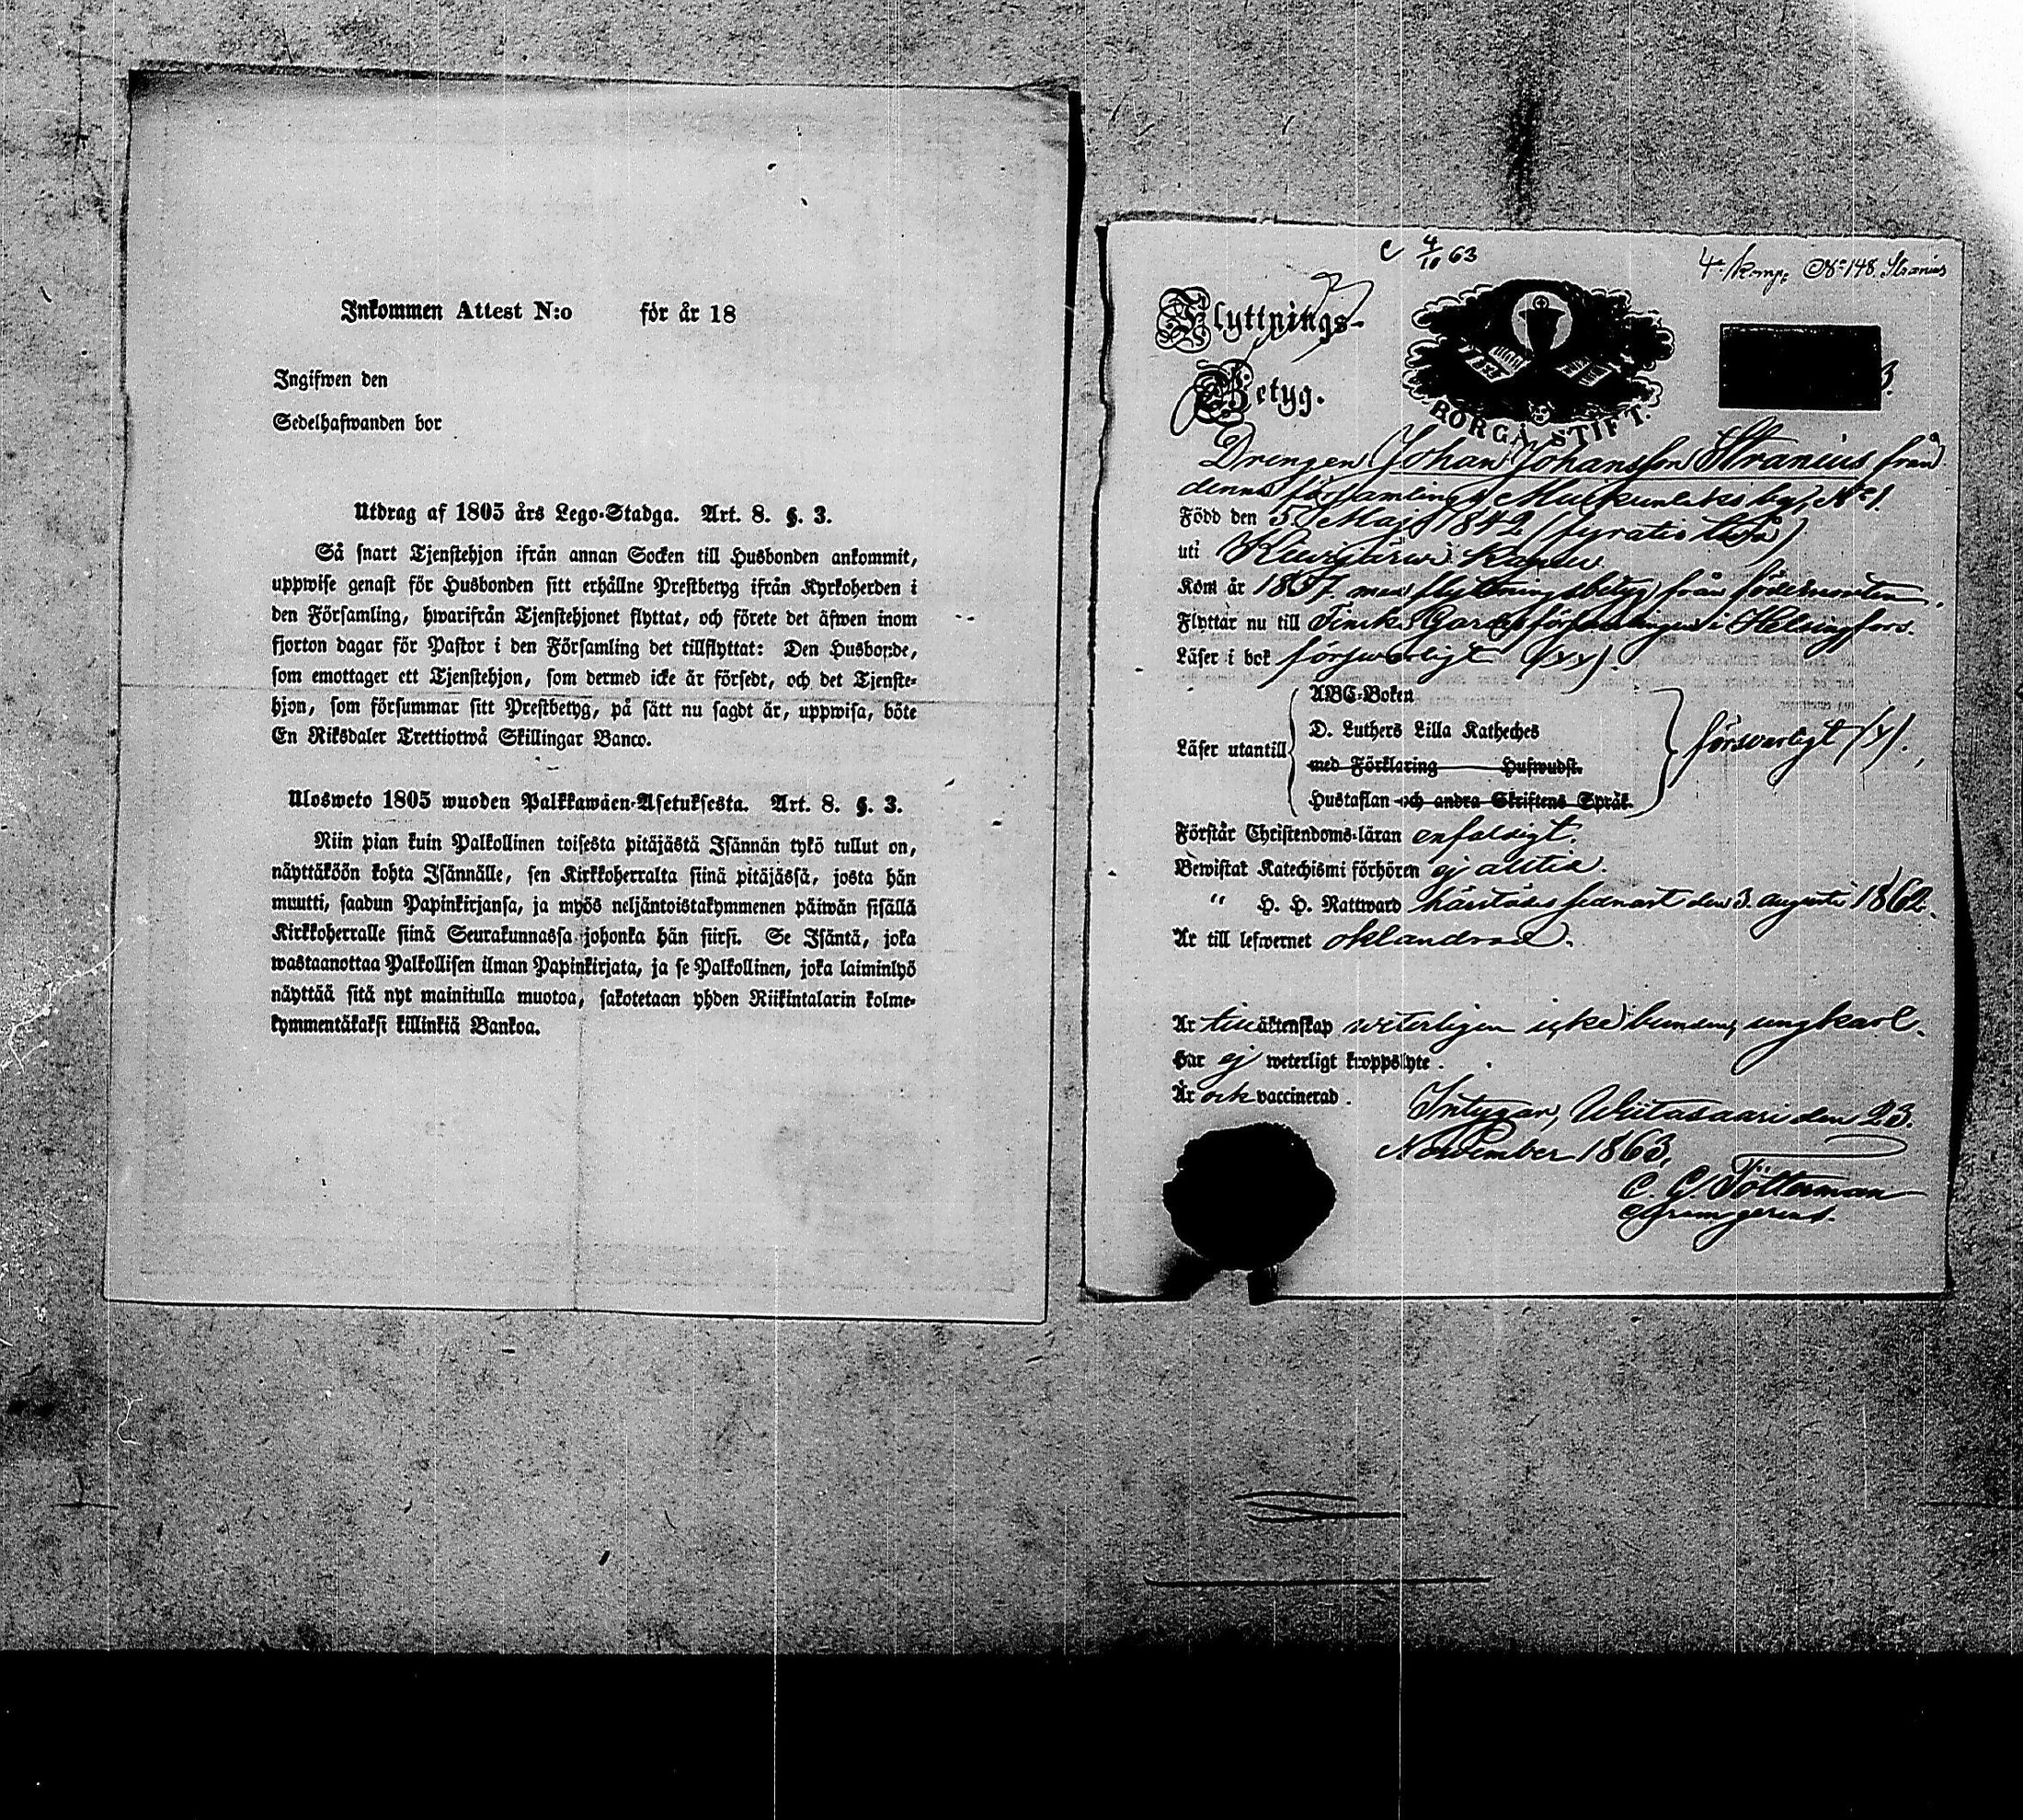 Inkommen Attest N:o för år 18
Ingifwen den
Sedelhafwanden bor
Utdrag af 1805 års Lego-Stadga. Art. 8. §. 3.
Så snart Tjenstehjon ifrån annan Socken till Husbonden ankommit,
uppwise genast för Husbonden sitt erhållne Prestbetyg ifrån Kyrkoherden i
den Församling, hwarifrån Tjenstehjonet flyttat, och förete det äfwen inom
fjorton dagar för Pastor i den Församling det tillflyttat: Den Husbonde,
som emottager ett Tjenstehjon, som dermed icke är försedt, och det Tjenste-
hjon, som försummar sitt Prestbetyg, på sätt nu sagdt är, uppwisa, böte
En Riksdaler Trettiotwå Skillingar Banco.
Ulosweto 1805 wuoden Palkkawäen-Asetuksesta. Art. 8. §. 3.
Niin pian kuin Palkollinen toisesta pitäjästä Isännän tykö tullut on,
näyttäköön kohta Isännälle, sen Kirkkoherralta siinä pitäjässä, josta hän
muutti, saadun Papinkirjansa, ja myös neljäntoistakymmenen päiwän sisällä
Kirkkoherralle siinä Seurakunnassa johonka hän siirsi. Se Isäntä, joka
wastaanottaa Palkollisen ilman Papinkirjata, ja se Palkollinen, joka laiminlyö
näyttää sitä nyt mainitulla muotoa, sakotetaan yhden Riikintalarin kolme-
kymmentäkaksi killinkiä Bankoa.
4/11 63
4e komp. No 148. Stranius
Flyttnings-
Betyg.
BORGÅ STIFT.
Drengen Johan Johansson Stranius från
denna församlings by, No 1.
Född den 5 Maji 1842 (fyratio två)
uti
Kom år 1857 med flyttningsbetyg från födelseorten.
Flyttar nu till Finska Gardesförsamlingen i Helsingfors.
Läser i bok försvarligt
ABC-Boken
D. Luthers Lilla Katheches
Läser utantill försvarligt
med Förklaring Hufwudst.
Hustaflan och andra Skriftens Språk.
Förstår Christendoms-läran enfaldigt.
Bewistat Katechismi förhören ej alltid.
" H. H. Nattward sednast den 3 augusti 1862.
Är till lefwernet oklandrad.
Är till äktenskap weterligen icke bunden, ungkarl.
Har ej weterligt kroppslyte.
Är ock vaccinerad.
Intygar, Wiitasaari den 23.
November 1863,
C. G. Töttermann